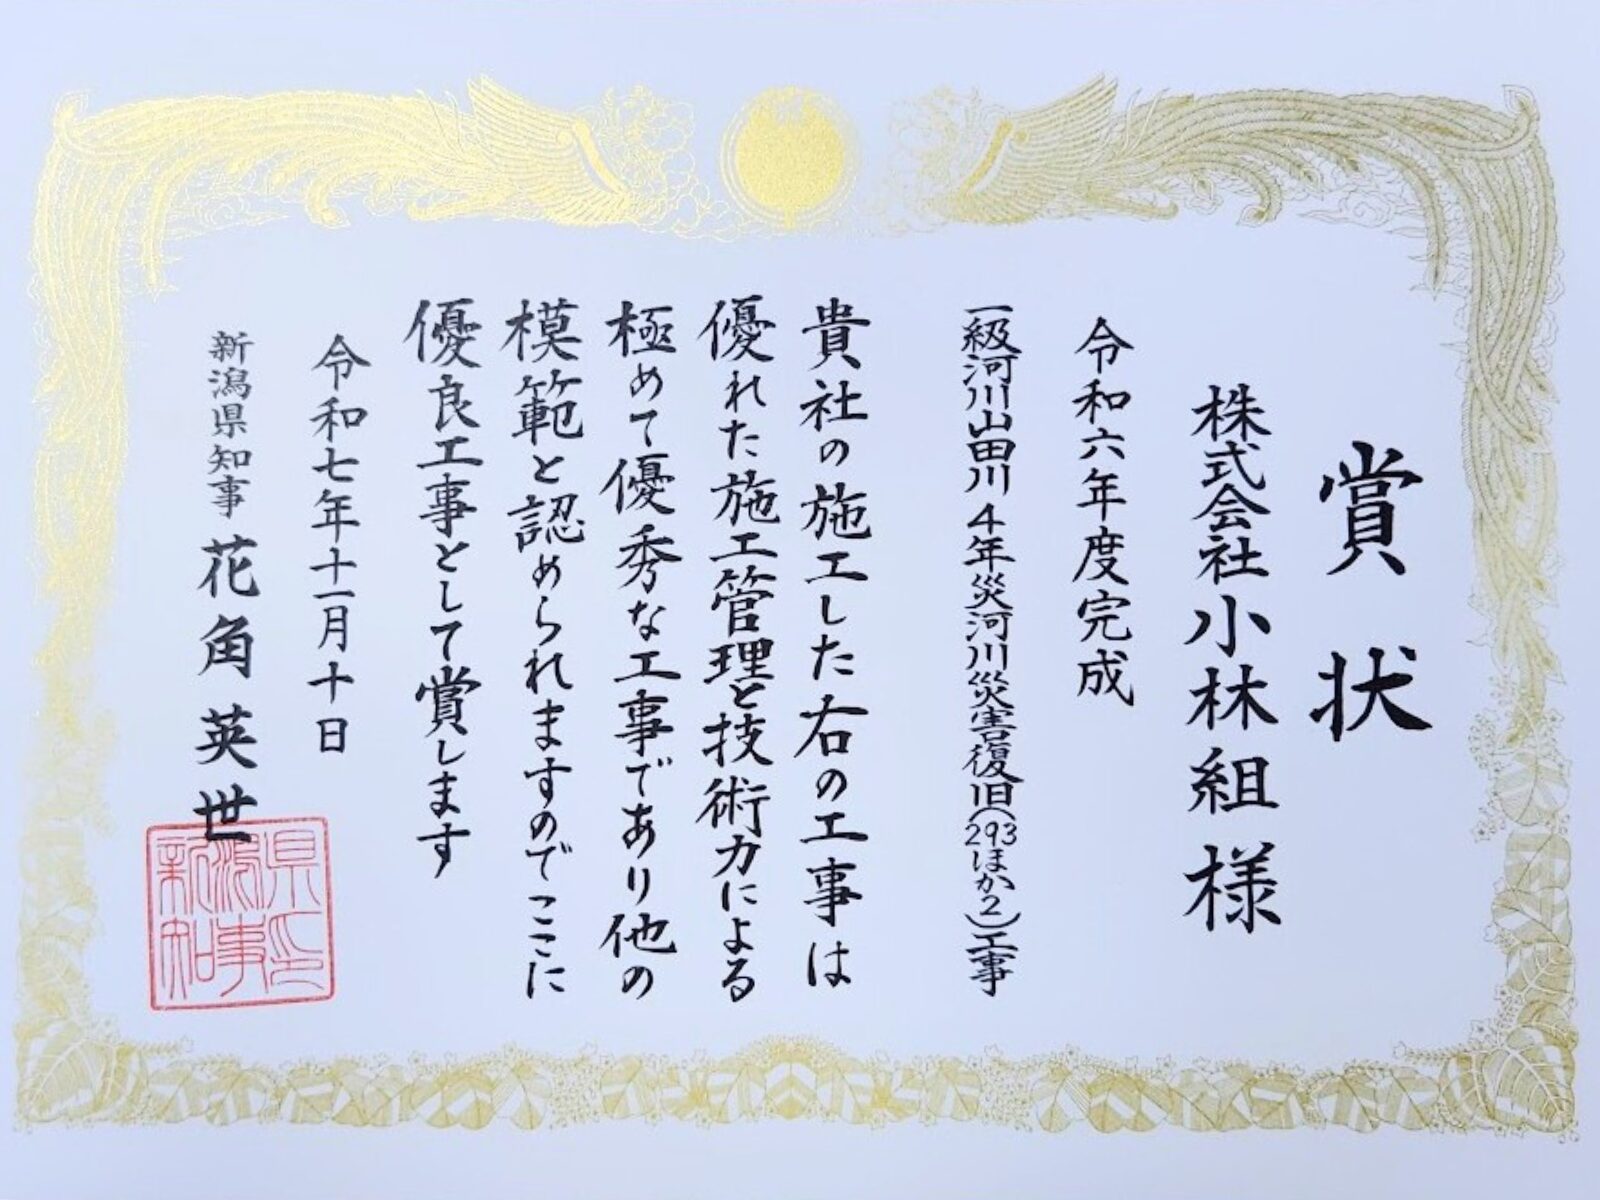 賞状
株式会社小林組様
令和六年度完成
一級河川山田川４年災河川災害復旧（293ほか2）工事
貴社の施工した右の工事は
優れた施工管理と技術力による
極めて優秀な工事であり他の
模範と認められますのでここに
優良工事として賞します
令和七年十一月十日
新潟県知事 花角英世
新潟県知事印